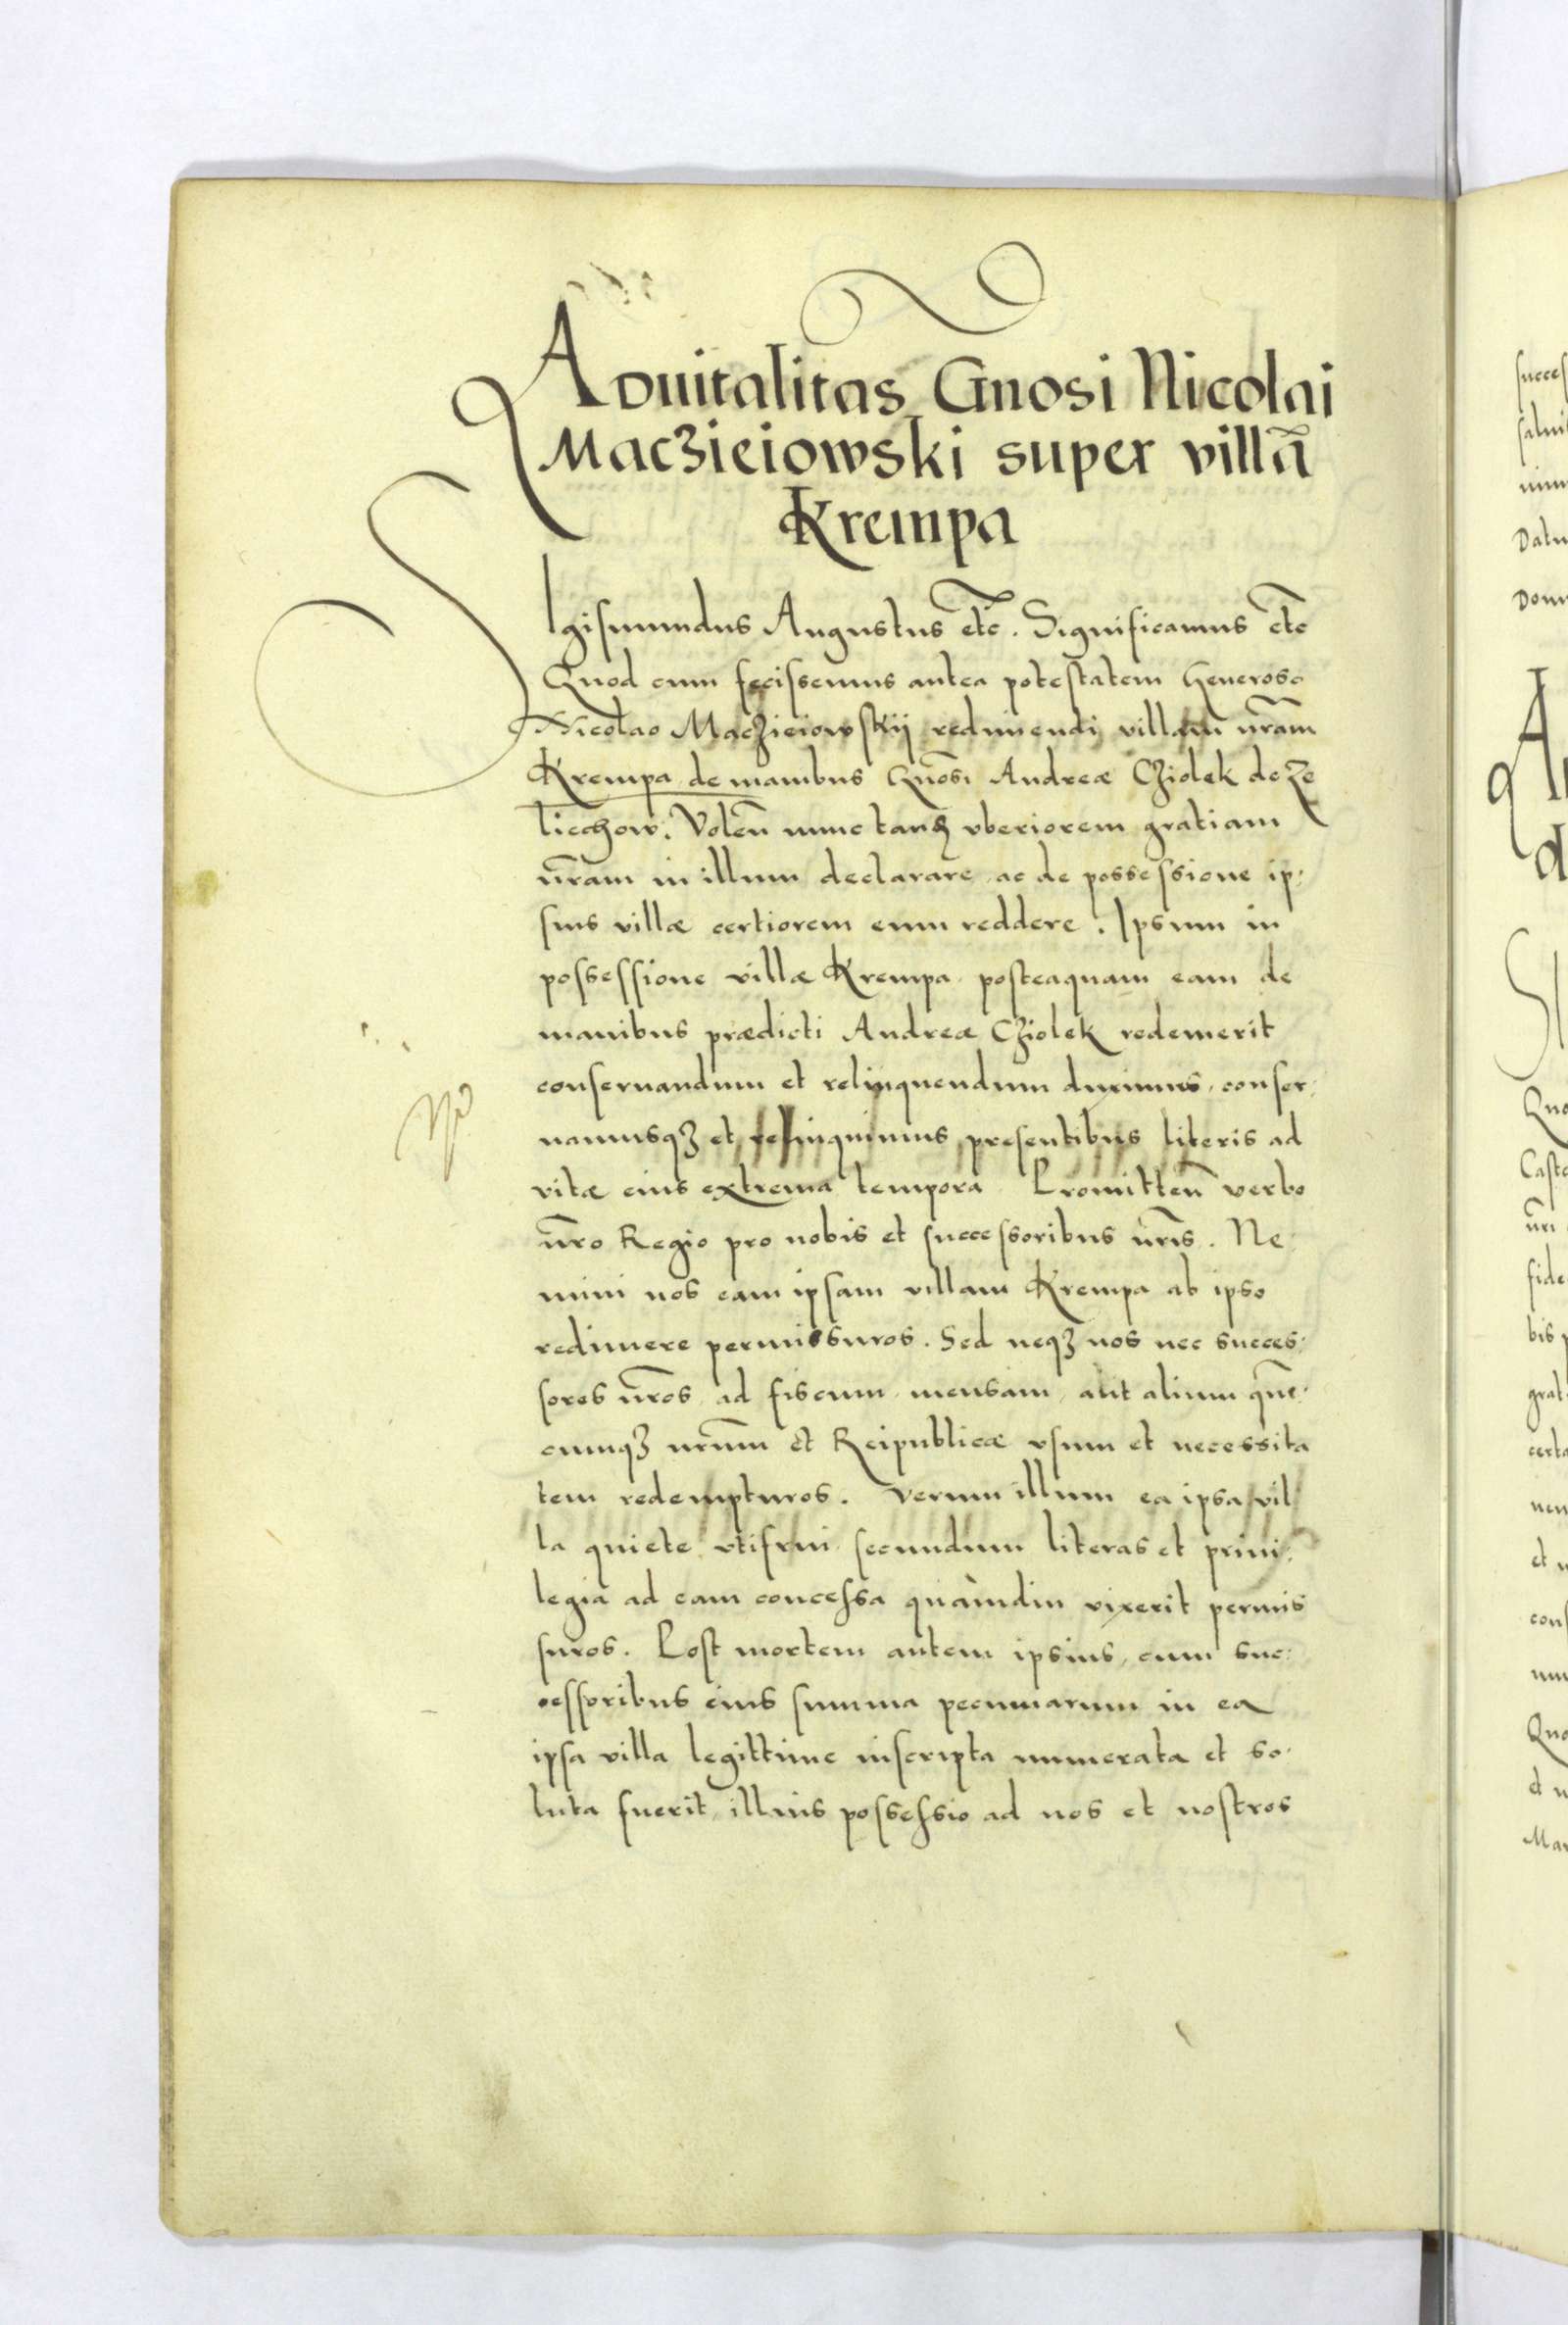 Aduitalitas Gnosi Nicolai
Maczieiowski super villā
Krempa
SIgismundus Augustus etc̄. Significamus etc̄
Quod cum fecissemus antea potestatem Generoso
Nicolao Maczieiowskij redimendi villam nr̄am
Krempa de manibus Gnōsi Andreæ Cziolek de Ze
liechow. Volen̄ nunc tandē vberiorem gratiam
nr̄am in illum declarare ac de possessione ip:
sius villæ certiorem eum reddere. Ipsum in
possessione villæ Krempa posteaquam eam de
manibus prædicti Andreæ Cziolek redemerit
conseruandum et relinquendum duximus, conser:
uamusqʒ et relinquimus presentibus literis ad
vitæ eius extrema tempora. Promitten̄ verbo
nr̄o Regio pro nobis et successoribus nr̄is. Ne
mini nos eam ipsam villam Krempa ab ipso
redimere permissuros. Sed neqʒ nos nec succes:
sores nr̄os ad fiscum, mensam, aut alium quē:
cumqʒ nr̄um et Reipublicæ vsum et necessita
tem redempturos. Verum illum ea ipsa vil
la quiete vtifrui secundum literas et priui:
legia ad eam concessa quàmdiu vixerit permis
suros. Post mortem autem ipsius, cum suc:
cessoribus eius summa pecuniarum in ea
ipsa villa legittime inscripta numerata et so:
luta fuerit, illius possessio ad nos et nostros